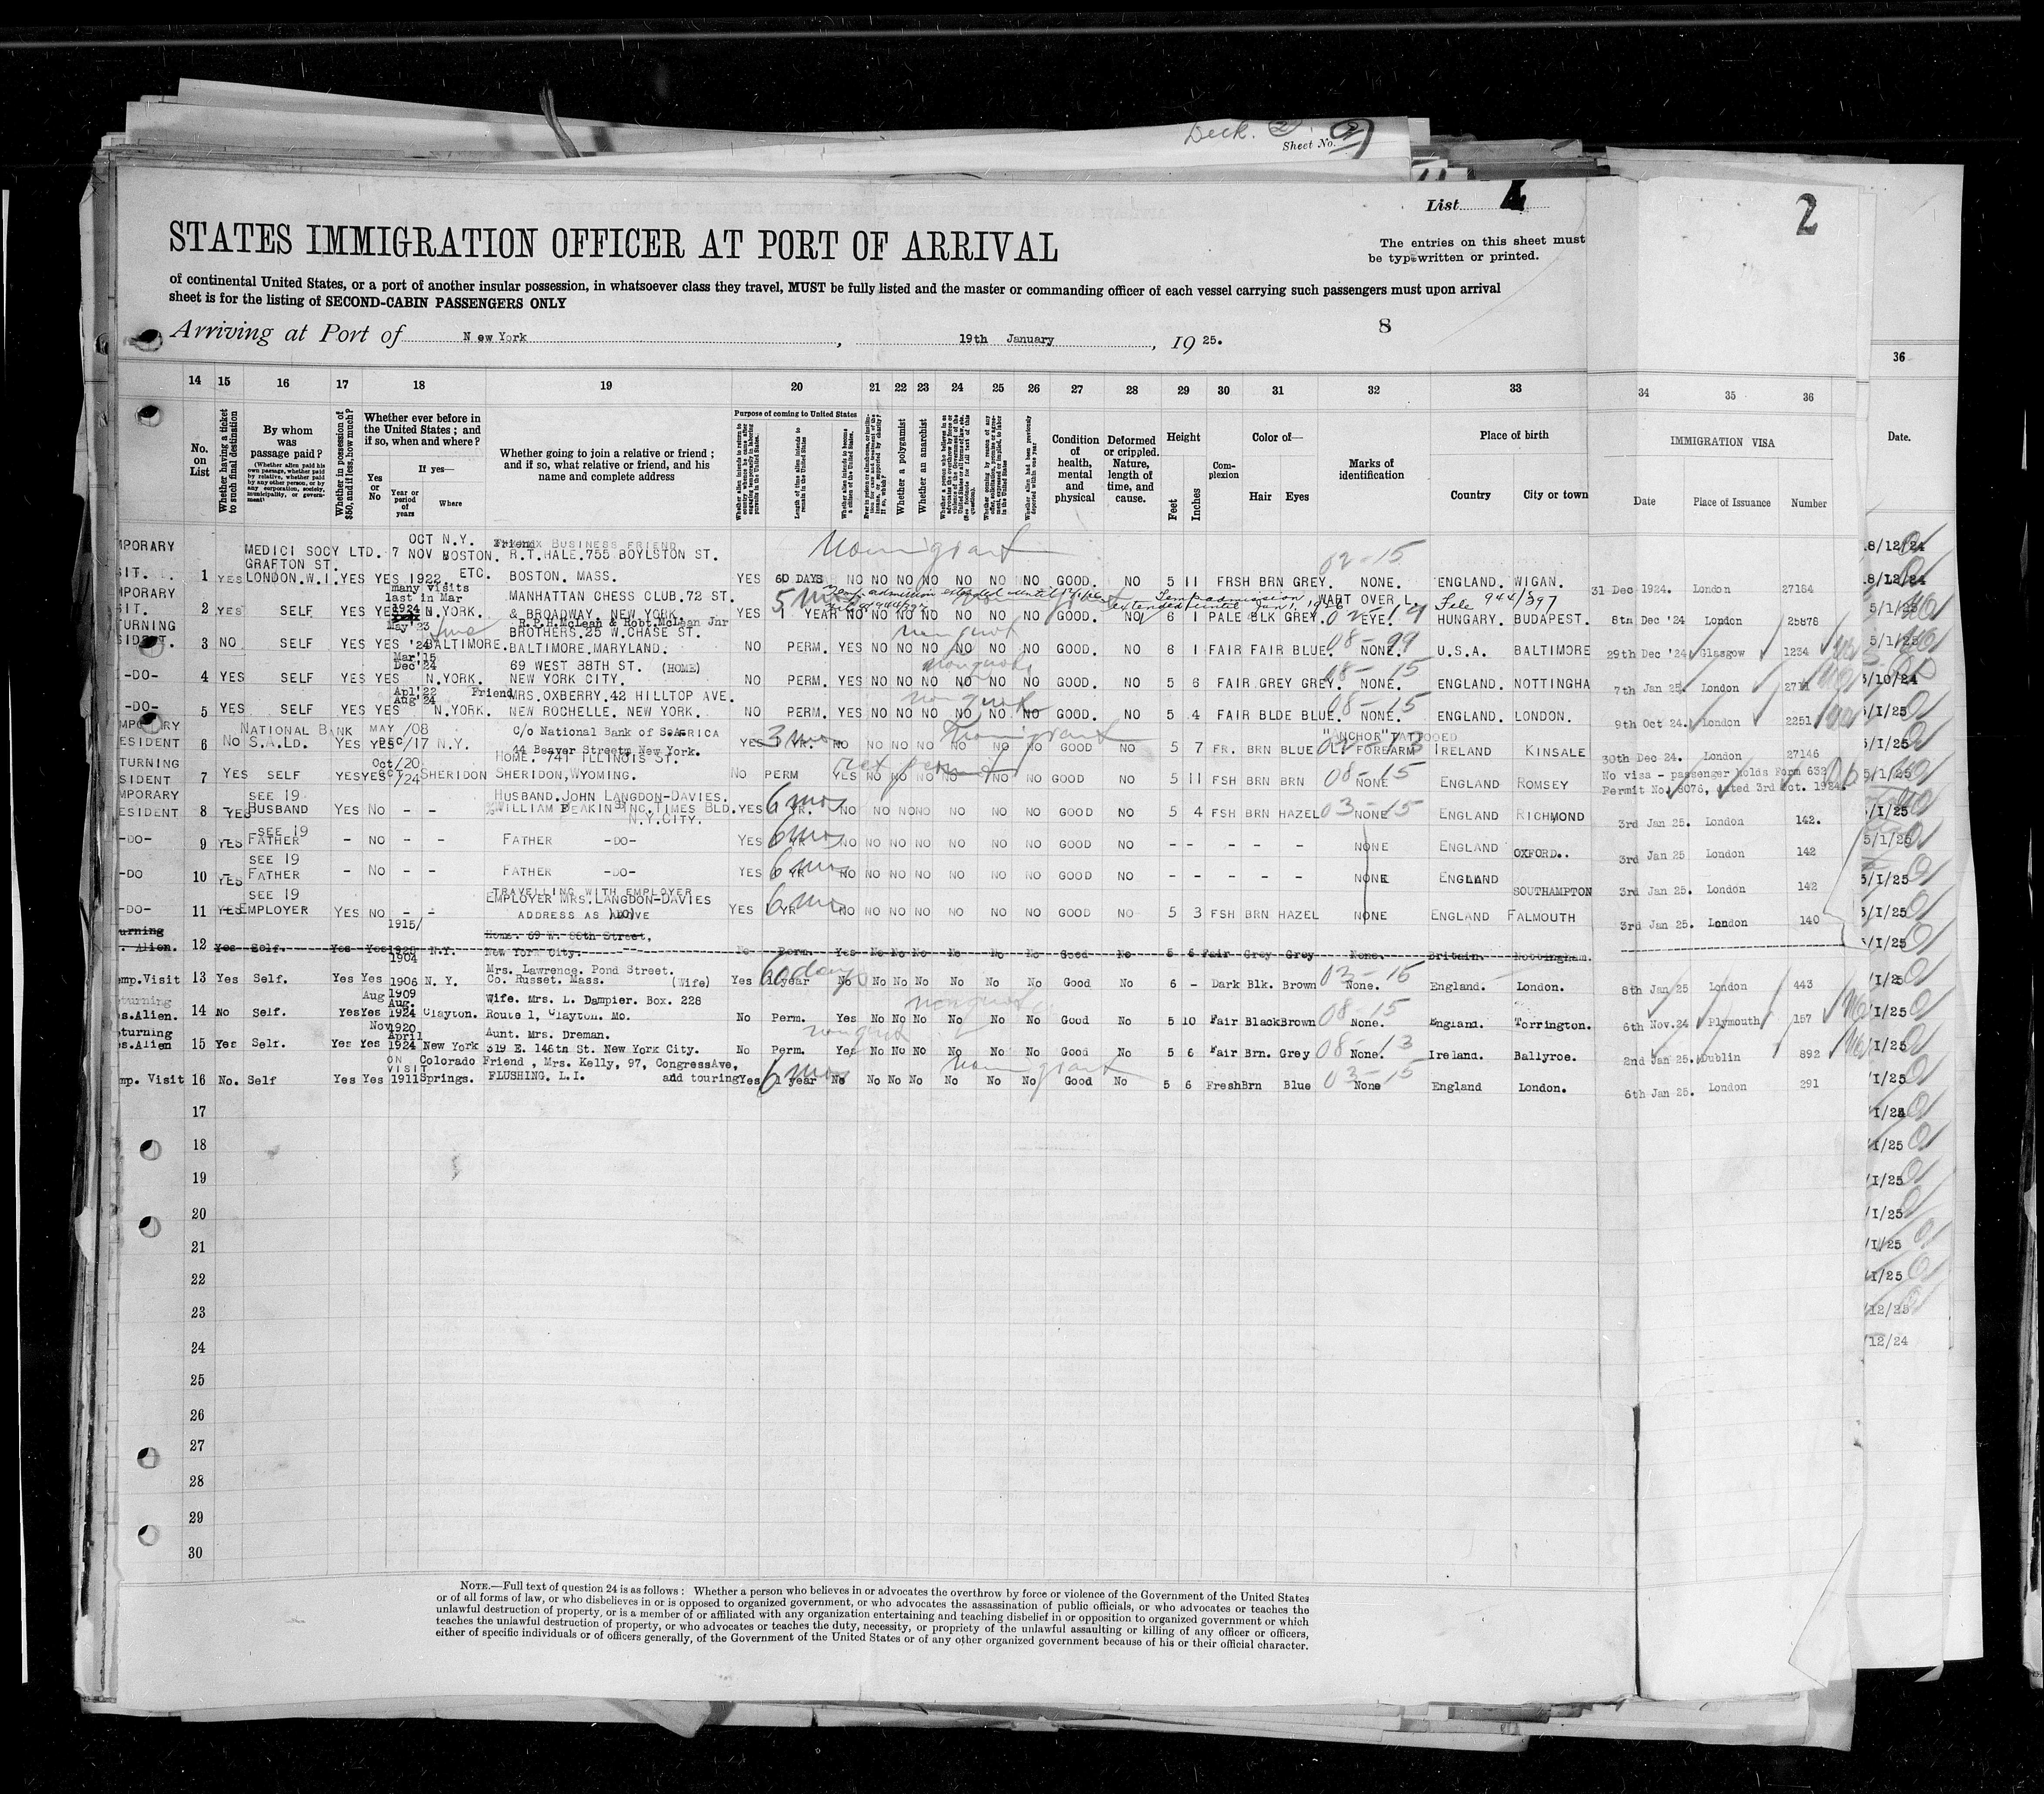 Deck. 2
Sheet No. 2
List
2
STATES IMMIGRATION OFFICER AT PORT OF ARRIVAL
The entries on this sheet must
be typewritten or printed.
of continental United States, or a port of another insular possession, in whatsoever class they travel, MUST be fully listed and the master or commanding officer of each vessel carrying such passengers must upon arrival
sheet is for the listing of SECOND-CABIN PASSENGERS ONLY
8
Arriving at Port of New York, 19th January, 19 25.
14 15 16 17 18 19 20 21 22 23 24 25 26 27 28 29 30 31 32 33 34 35 36 36
No. on List
Whether having a ticket to such final destination
By whom was passage paid?
(Whether alien paid his own passage, whether paid by relative, whether paid by any other person, or by any corporation, society, municipality, or government)
Whether in possession of $50, and if less, how much?
Whether ever before in the United States; and if so, when and where?
Yes or No
If yes—
Year or period of years
Where
Whether going to join a relative or friend; and if so, what relative or friend, and his name and complete address
Purpose of coming to United States
Length of time alien intends to remain in the United States
Whether alien intends to become a citizen of the United States.
Whether a polygamist
Whether an anarchist
Whether alien had been previously deported within one year
Condition of health, mental and physical
Deformed or crippled. Nature, length of time, and cause.
Height
Feet Inches
Complexion
Color of—
Hair Eyes
Marks of identification
Place of birth
Country City or town
IMMIGRATION VISA
Date Place of Issuance Number
Date.
MPORARY SIT. 1 YES MEDICI SOCY LTD. GRAFTON ST. LONDON.W.I. YES YES OCT 7 NOV 1922. N.Y. BOSTON. ETC. Friend BUSINESS FRIEND R.T.HALE.755 BOYLSTON ST. BOSTON. MASS. YES 60 DAYS NO NO NO NO NO NO NO GOOD. NO 5 11 FRSH BRN GREY. 02-15 NONE. ENGLAND. WIGAN. 31 Dec 1924. London 27184
MPORARY SIT. 2 YES SELF YES YES many visits last in Mar 1924 N.YORK. MANHATTAN CHESS CLUB.72 ST. & BROADWAY. NEW YORK. YES 1 YEAR 5 mos NO NO NO NO NO NO NO GOOD. NO 6 1 PALE BLK GREY. WART OVER L. EYE. HUNGARY. BUDAPEST. 8th Dec '24 London 25878
Temp admission extended until Jan 1, 1926 File 944/397
TURNING SIDENT. 3 NO SELF YES YES May '23 June '24 BALTIMORE. R.P.H.McLean & Robt.McLean Jnr BROTHERS.25 W.CHASE ST. BALTIMORE.MARYLAND. NO PERM. YES NO NO NO NO NO NO GOOD. NO 6 1 FAIR FAIR BLUE. 08-99 NONE. U.S.A. BALTIMORE 29th Dec '24 Glasgow 1234
-DO- 4 YES SELF YES YES Mar '15 Dec '24 N.YORK. 69 WEST 38TH ST. (HOME) NEW YORK CITY. NO PERM. YES NO NO NO NO NO NO GOOD. NO 5 6 FAIR GREY GREY. 08-15 NONE. ENGLAND. NOTTINGHA 7th Jan 25. London
-DO- 5 YES SELF YES YES Apl '22 Aug '24 N.YORK. Friend MRS.OXBERRY.42 HILLTOP AVE. NEW ROCHELLE. NEW YORK. NO PERM. YES NO NO NO NO NO NO GOOD. NO 5 4 FAIR BLDE BLUE. 08-15 NONE. ENGLAND. LONDON. 9th Oct 24. London 2251
MPORARY ESIDENT 6 NO NATIONAL BANK S.A.LD. YES YES MAY /08 Dec/17 N.Y. C/o National Bank of S.AFRICA 44 Beaver Streets New York. YES 3 mos NO NO NO NO NO NO NO GOOD NO 5 7 FR. BRN BLUE "ANCHOR" TATTOOED L. FOREARM IRELAND KINSALE 30th Dec 24. London 27146
TURNING SIDENT 7 YES SELF YES YES Oct/20 Oct/24 SHERIDON HOME. 741 ILLINOIS ST. SHERIDON,WYOMING. NO PERM YES NO NO NO NO NO NO GOOD NO 5 11 FSH BRN BRN 08-15 NONE ENGLAND ROMSEY No visa - passenger holds Form 632 Permit No. 8076, dated 3rd Oct. 1924.
MPORARY ESIDENT 8 YES SEE 19 HUSBAND YES NO - - HUSBAND.JOHN LANGDON-DAVIES. WILLIAM FEAKINS INC. TIMES BLD. N.Y.CITY. YES 6 mos NO NO NO NO NO NO NO GOOD NO 5 4 FSH BRN HAZEL 03-15 NONE ENGLAND RICHMOND 3rd Jan 25. London 142.
-DO- 9 YES SEE 19 FATHER - NO - - FATHER -DO- YES 6 mos NO NO NO NO NO NO NO GOOD NO - - - - - NONE ENGLAND OXFORD.. 3rd Jan 25 London 142
-DO 10 YES SEE 19 FATHER - NO - - FATHER -DO- YES 6 mos NO NO NO NO NO NO NO GOOD NO - - - - - NONE ENGLAND SOUTHAMPTON 3rd Jan 25. London 142
-DO- 11 YES SEE 19 EMPLOYER YES NO - - TRAVELLING WITH EMPLOYER EMPLOYER MRS.LANGDON-DAVIES ADDRESS AS ABOVE YES 6 mos NO NO NO NO NO NO NO GOOD NO 5 3 FSH BRN HAZEL NONE ENGLAND FALMOUTH 3rd Jan 25. London 140
urning . Alien. 12 Yes Self. Yes Yes 1915/ N.Y. Home. 69 W. 88th Street, New York City. No Perm. Yes No No No No No No Good No 5 6 Fair Grey Grey None. Britain. Nottingham.
emp.Visit 13 Yes Self. Yes Yes 1904 1906 N. Y. Mrs. Lawrence. Pond Street. Co. Russet. Mass. (Wife) Yes 1 year 60 days No No No No No No No Good No 6 - Dark Blk. Brown 03-15 None. England. London. 8th Jan 25 London 443
eturning s.Alien. 14 No Self. Yes Yes Aug 1909 Aug. 1924 Clayton. Wife. Mrs. L. Dampier. Box. 228 Route 1, Clayton. Mo. No Perm. Yes No No No No No No Good No 5 10 Fair Black Brown 08-15 None. England. Torrington. 6th Nov.24 Plymouth 157
eturning s.Alien 15 Yes Self. Yes Yes Nov 1920 April 1924 New York Aunt. Mrs. Dreman. 319 E. 146th St. New York City. No Perm. Yes No No No No No No Good No 5 6 Fair Brn. Grey 08-13 None. Ireland. Ballyroe. 2nd Jan 25. Dublin 892
mp. Visit 16 No. Self Yes Yes ON VISIT 1911 Colorado Springs. Friend, Mrs. Kelly, 97, CongressAve, FLUSHING. L.I. and touring Yes 1 year 6 mos No No No No No No No Good No 5 6 Fresh Brn Blue 03-15 None England London. 6th Jan 25. London 291
17
18
19
20
21
22
23
24
25
26
27
28
29
30
NOTE.—Full text of question 24 is as follows: Whether a person who believes in or advocates the overthrow by force or violence of the Government of the United States
or of all forms of law, or who disbelieves in or is opposed to organized government, or who advocates the assassination of public officials, or who advocates or teaches the
unlawful destruction of property, or is a member of or affiliated with any organization entertaining and teaching disbelief in or opposition to organized government or which
teaches the unlawful destruction of property, or who advocates or teaches the duty, necessity, or propriety of the unlawful assaulting or killing of any officer or officers,
either of specific individuals or of officers generally, of the Government of the United States or of any other organized government because of his or their official character.